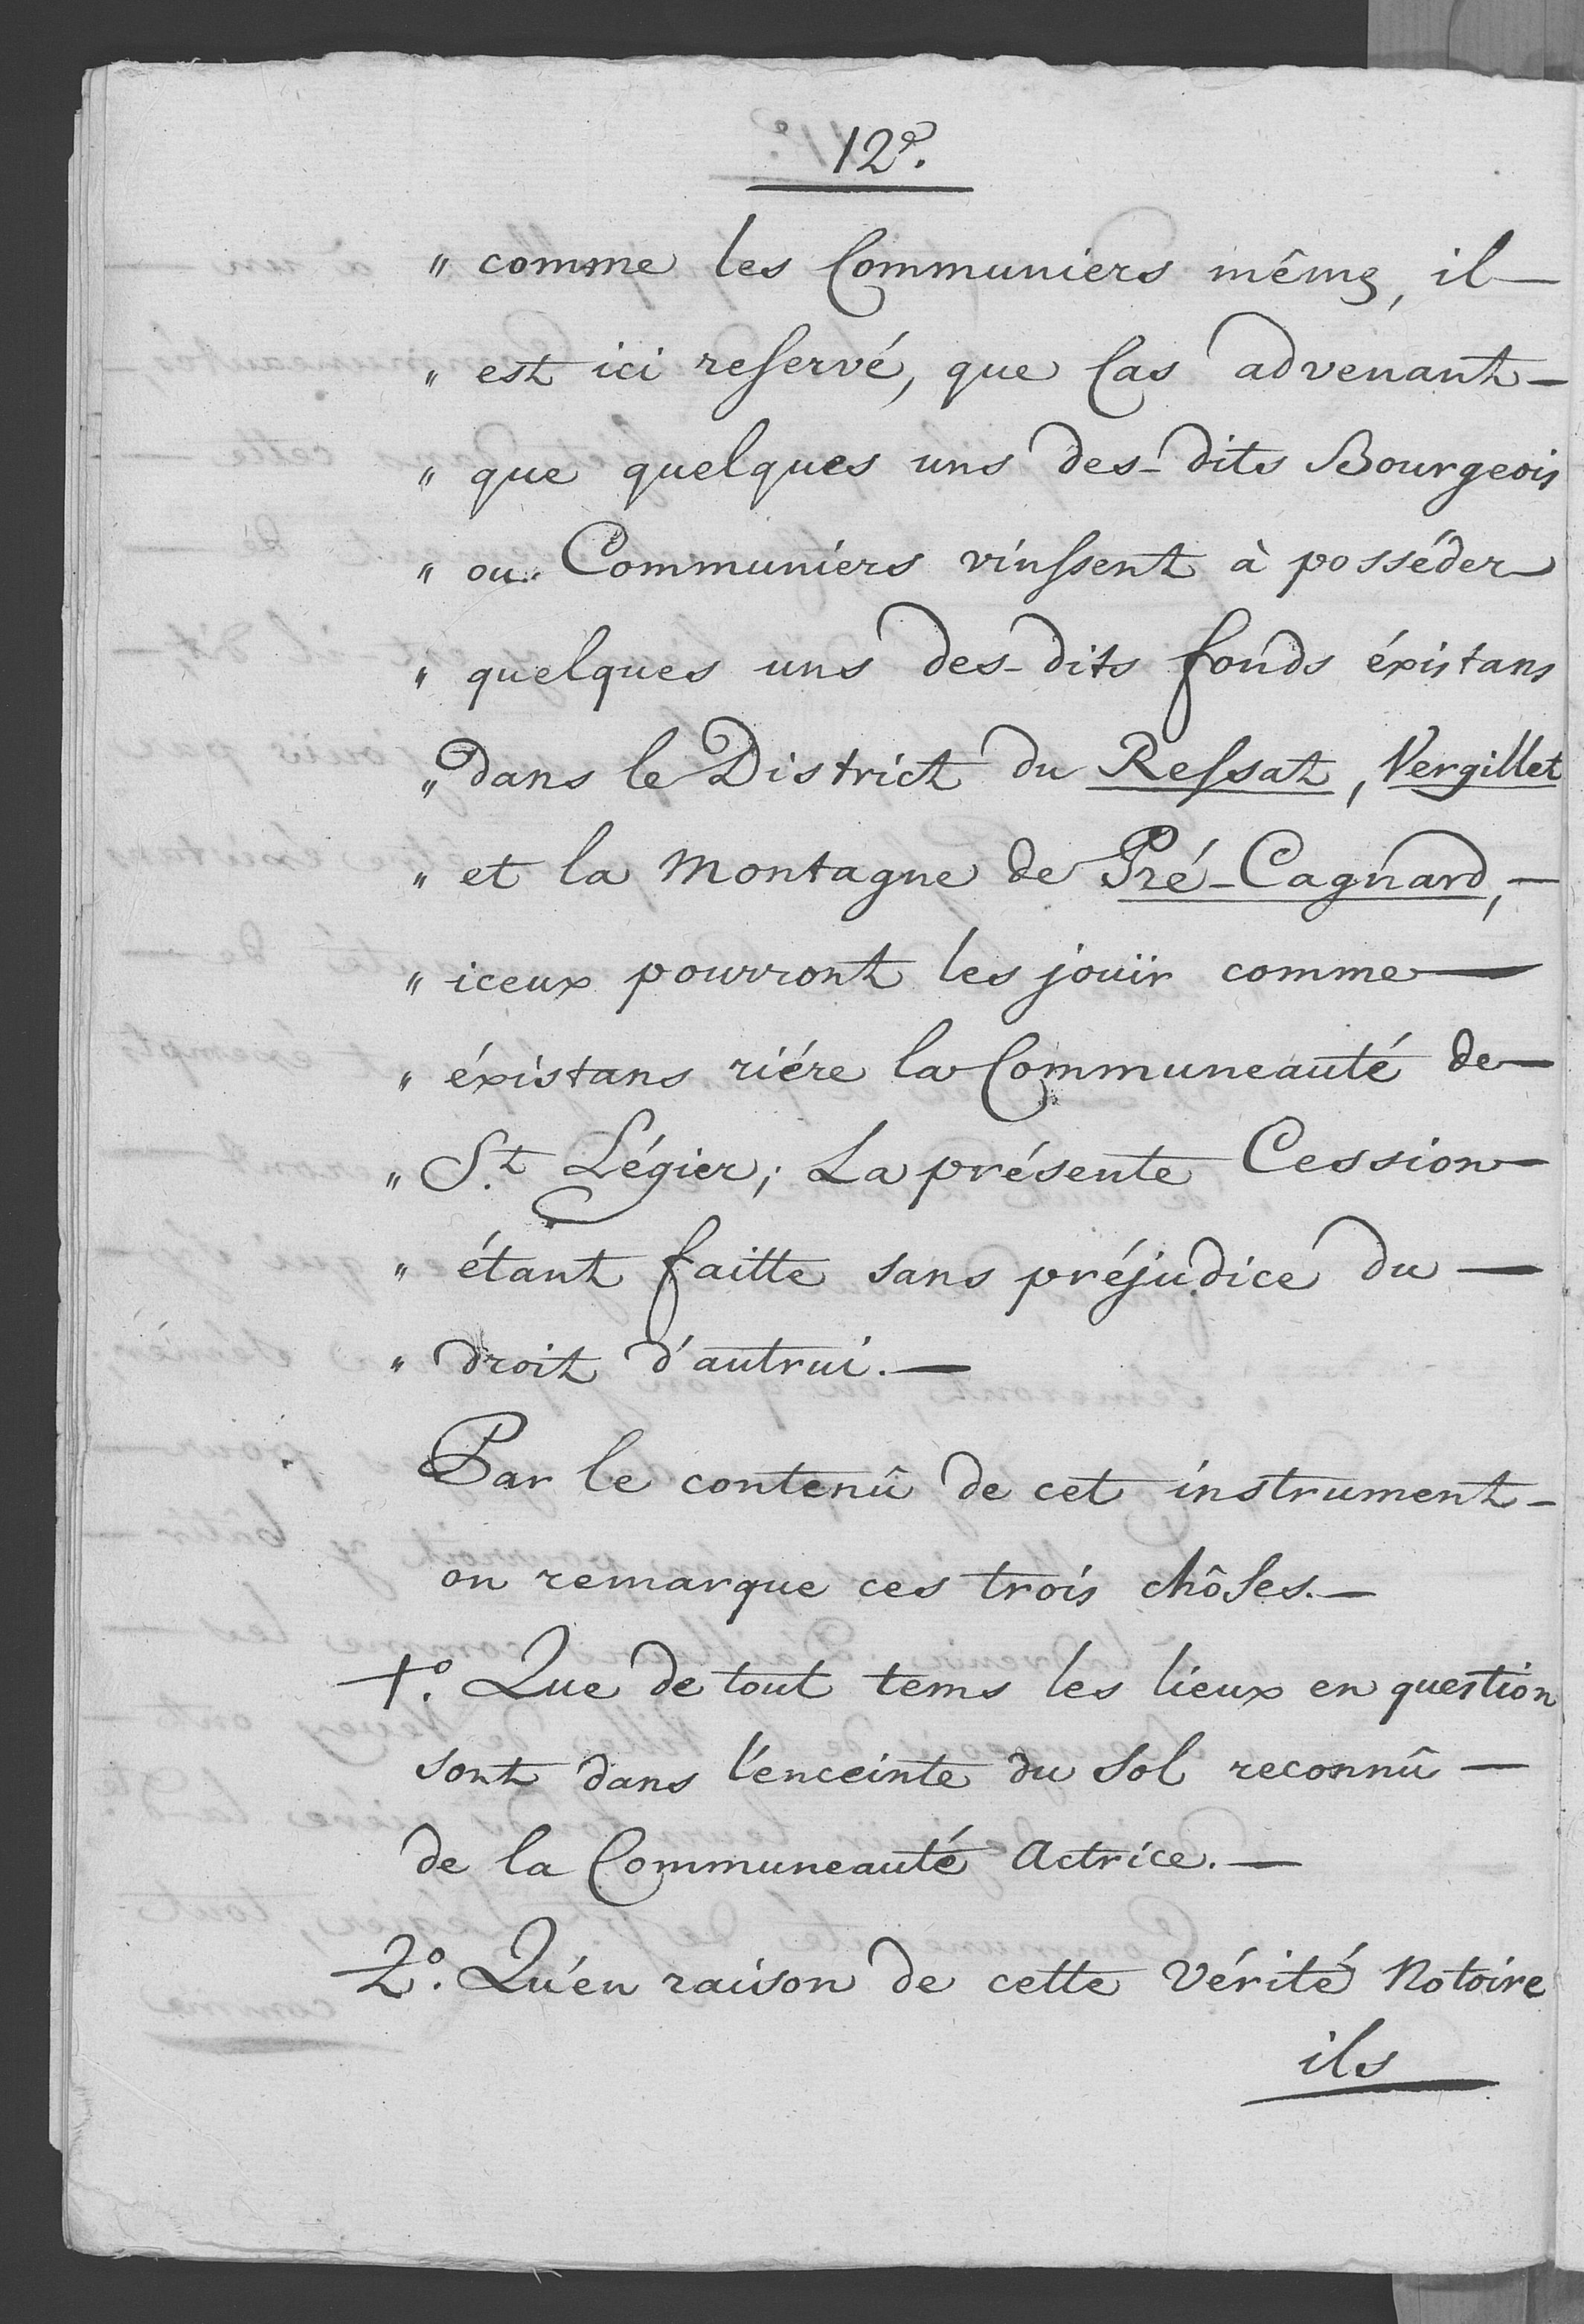 12e.
" comme les Communiers même, il —
" est ici reservé, que Cas advenant —
" que quelques uns des-dits Bourgeois
" ou Communiers vinssent à posséder
" quelques uns des-dits fonds éxistans
" dans le District du Ressat, Vergillet
" et la Montagne de Pré-Cagnard, —
" iceux pourront les jouïr comme —
" éxistans riére la Communeauté de —
" St. Légier; La présente Cession —
" étant faitte sans préjudice du —
" droit d'autrui. —
Par le contenû de cet instrument —
on remarque ces trois chôses. —
1o. Que de tout tems les lieux en question
sont dans l'enceinte du Sol reconnû —
de la Communeauté Actrice. —
2o. Qu'en raison de cette Vérité Notoire
ils